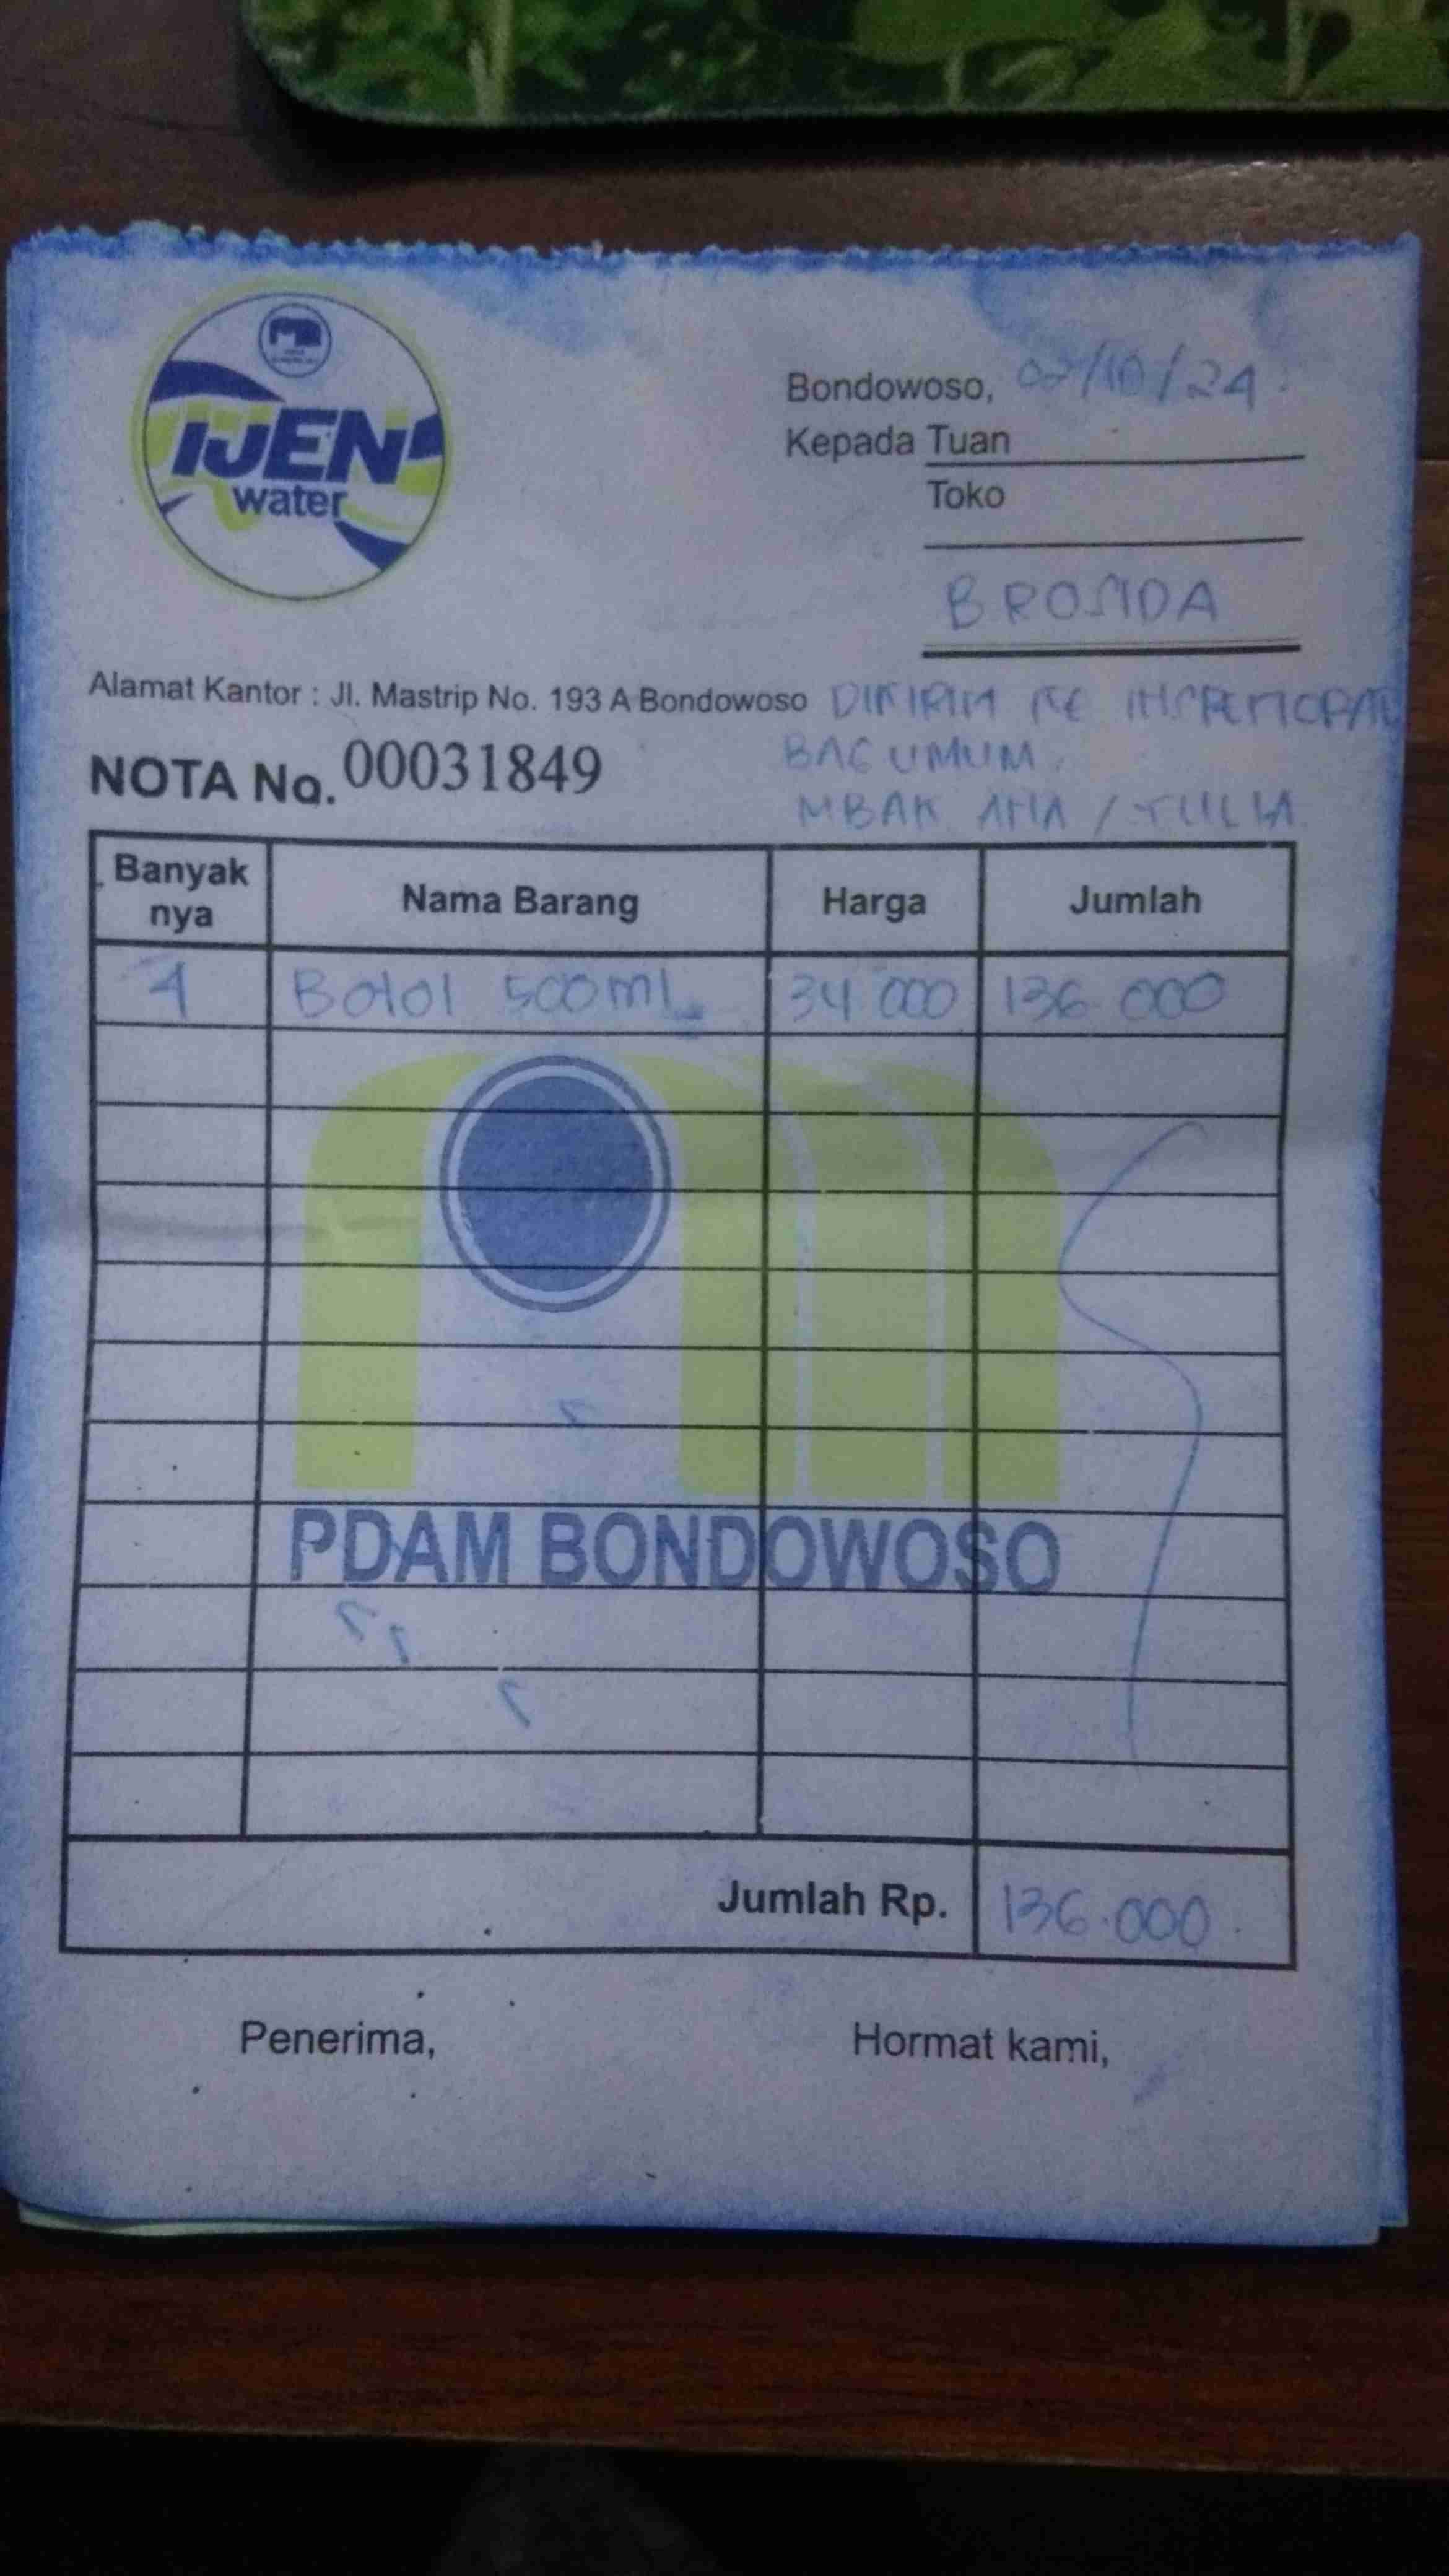 IJEN
water
Bondowoso, 07/10/24
Kepada Tuan
Toko
BROSIDA
Alamat Kantor : Jl. Mastrip No. 193 A Bondowoso DIKIRIM KE INSPEKTORAT
BAG UMUM
NOTA No. 00031849
MBAK ANA /
Banyak nya Nama Barang Harga Jumlah
4 Botol 500 ml 34 000 136 000
PDAM BONDOWOSO
Jumlah Rp. 136.000
Penerima, Hormat kami,